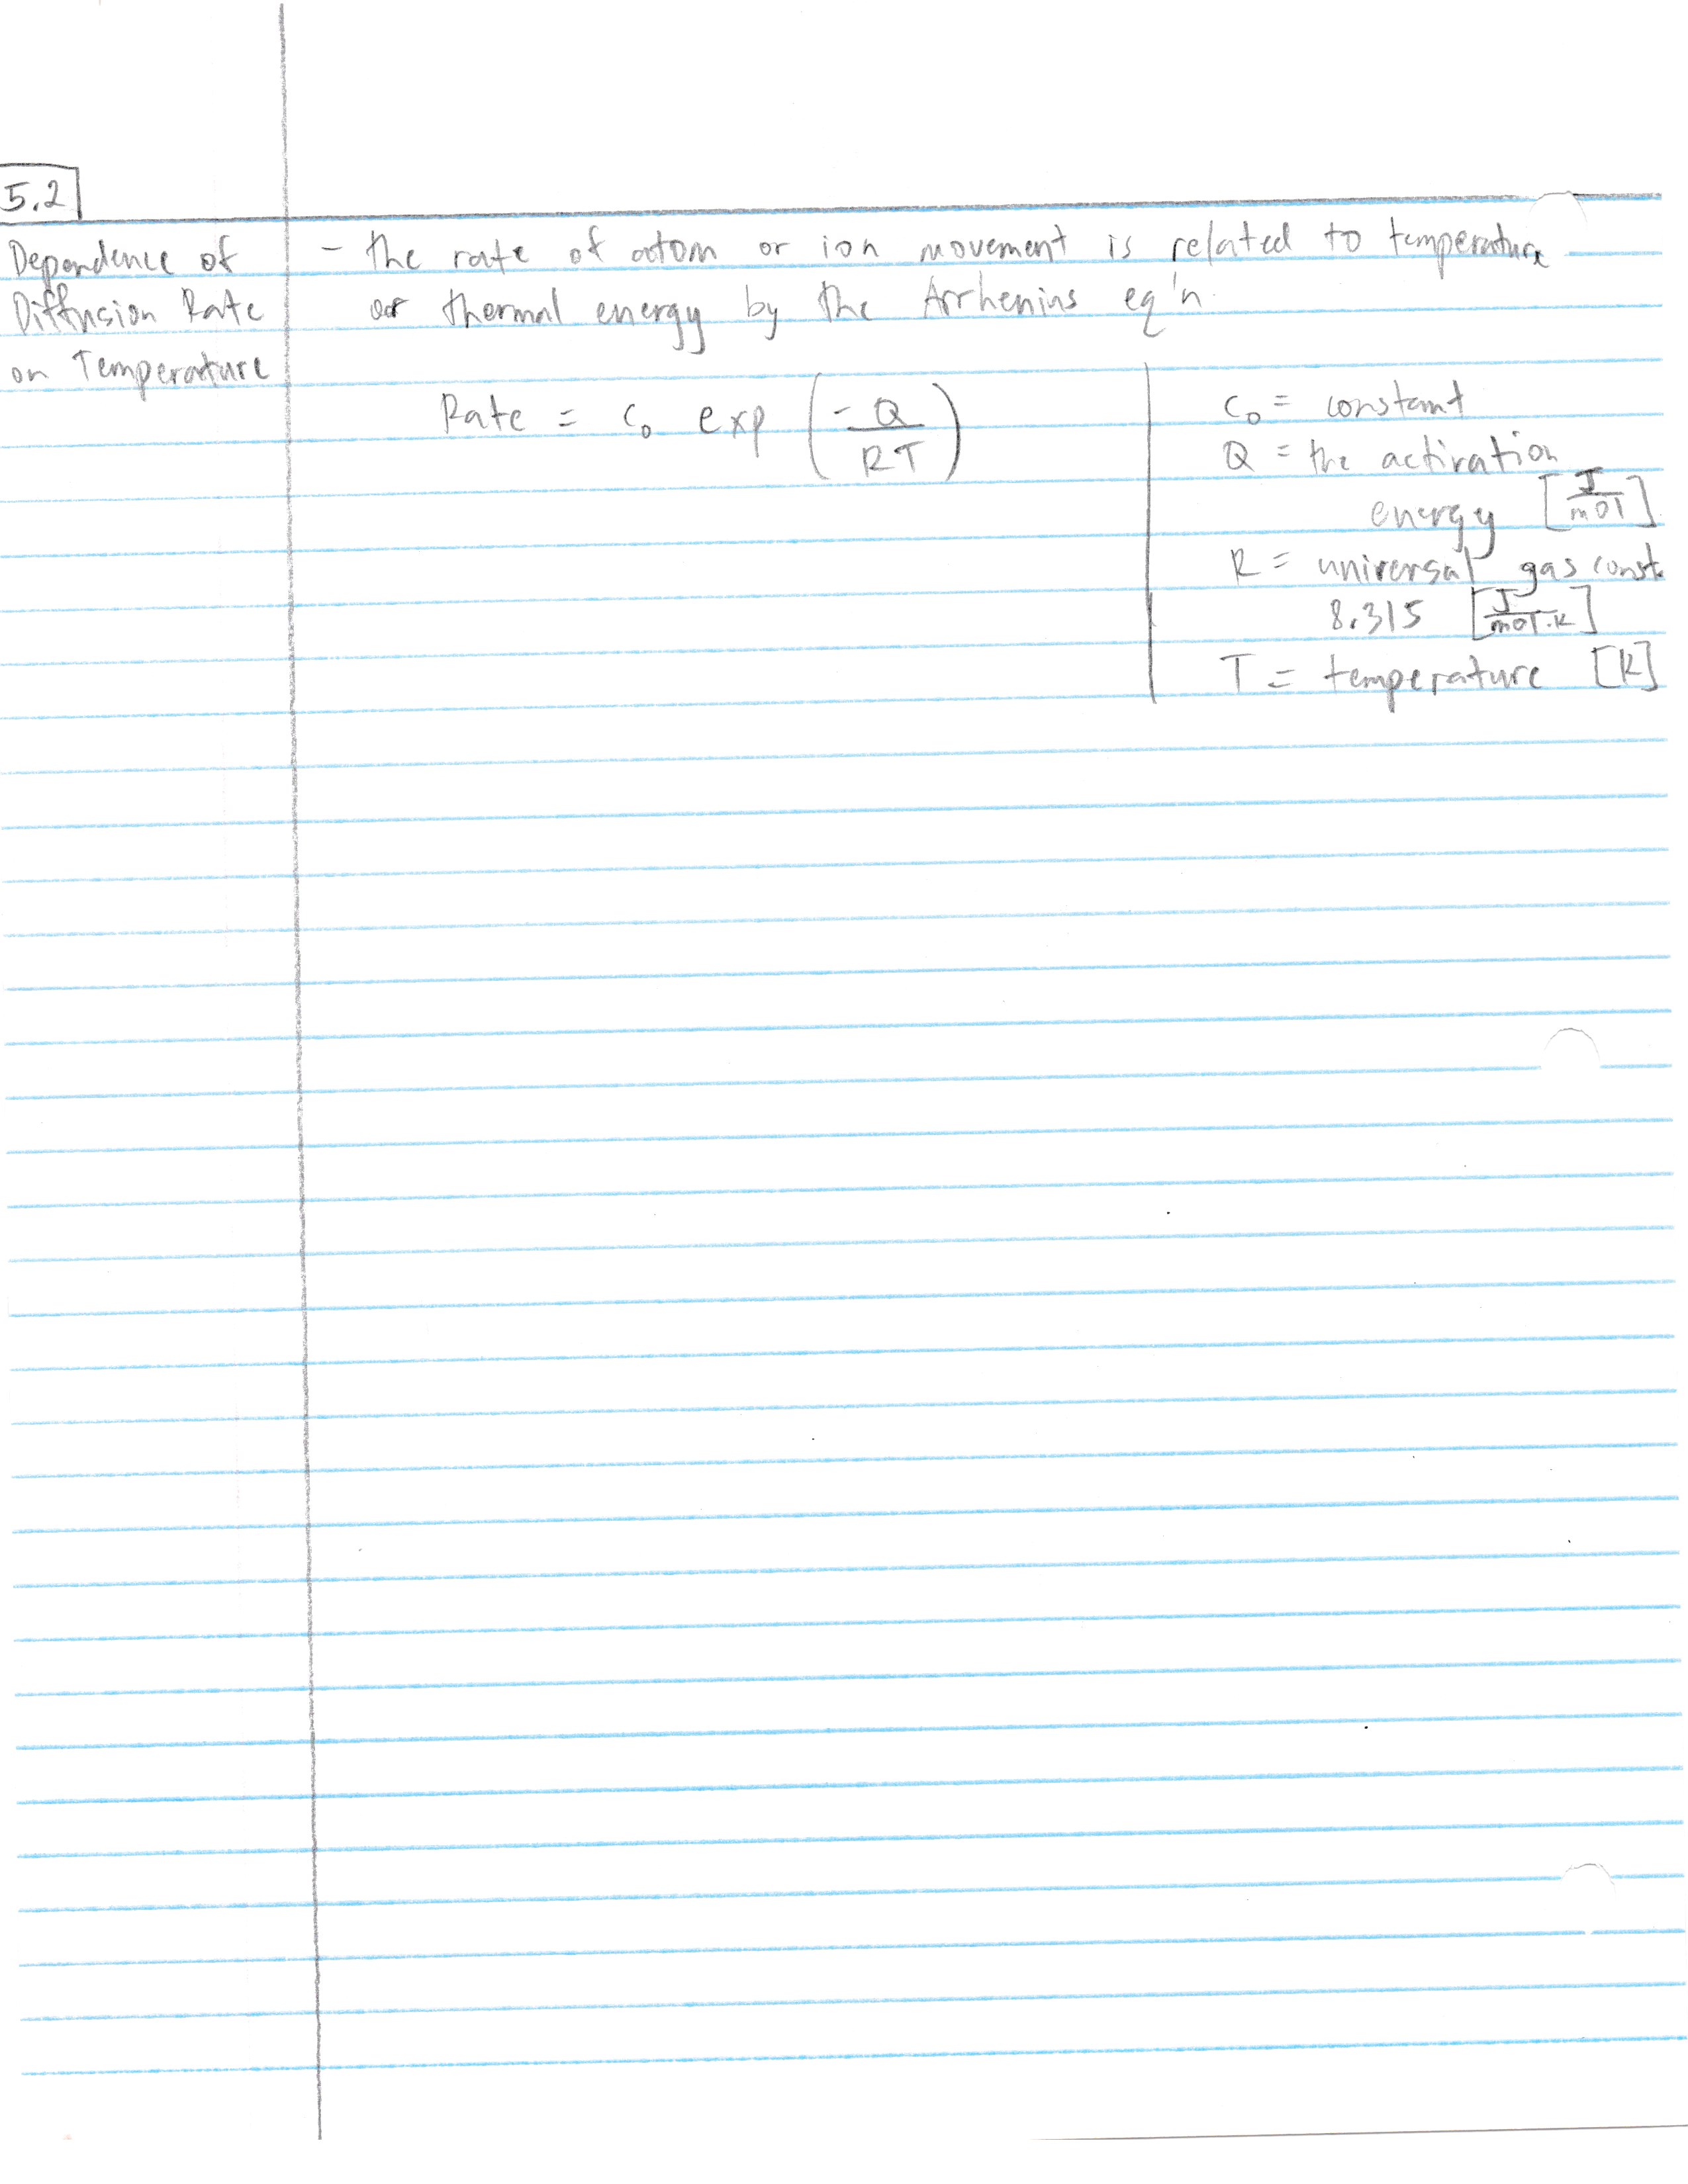 5.2
Dependence of
Diffusion Rate
on Temperature
- the rate of atom or ion movement is related to temperature
or thermal energy by the Arrhenius eq'n.
Rate = c₀ exp (-Q/RT)
c₀ = constant
Q = the activation
energy [J/mol]
R = universal gas const.
8.315 [J/mol·K]
T = temperature [K]